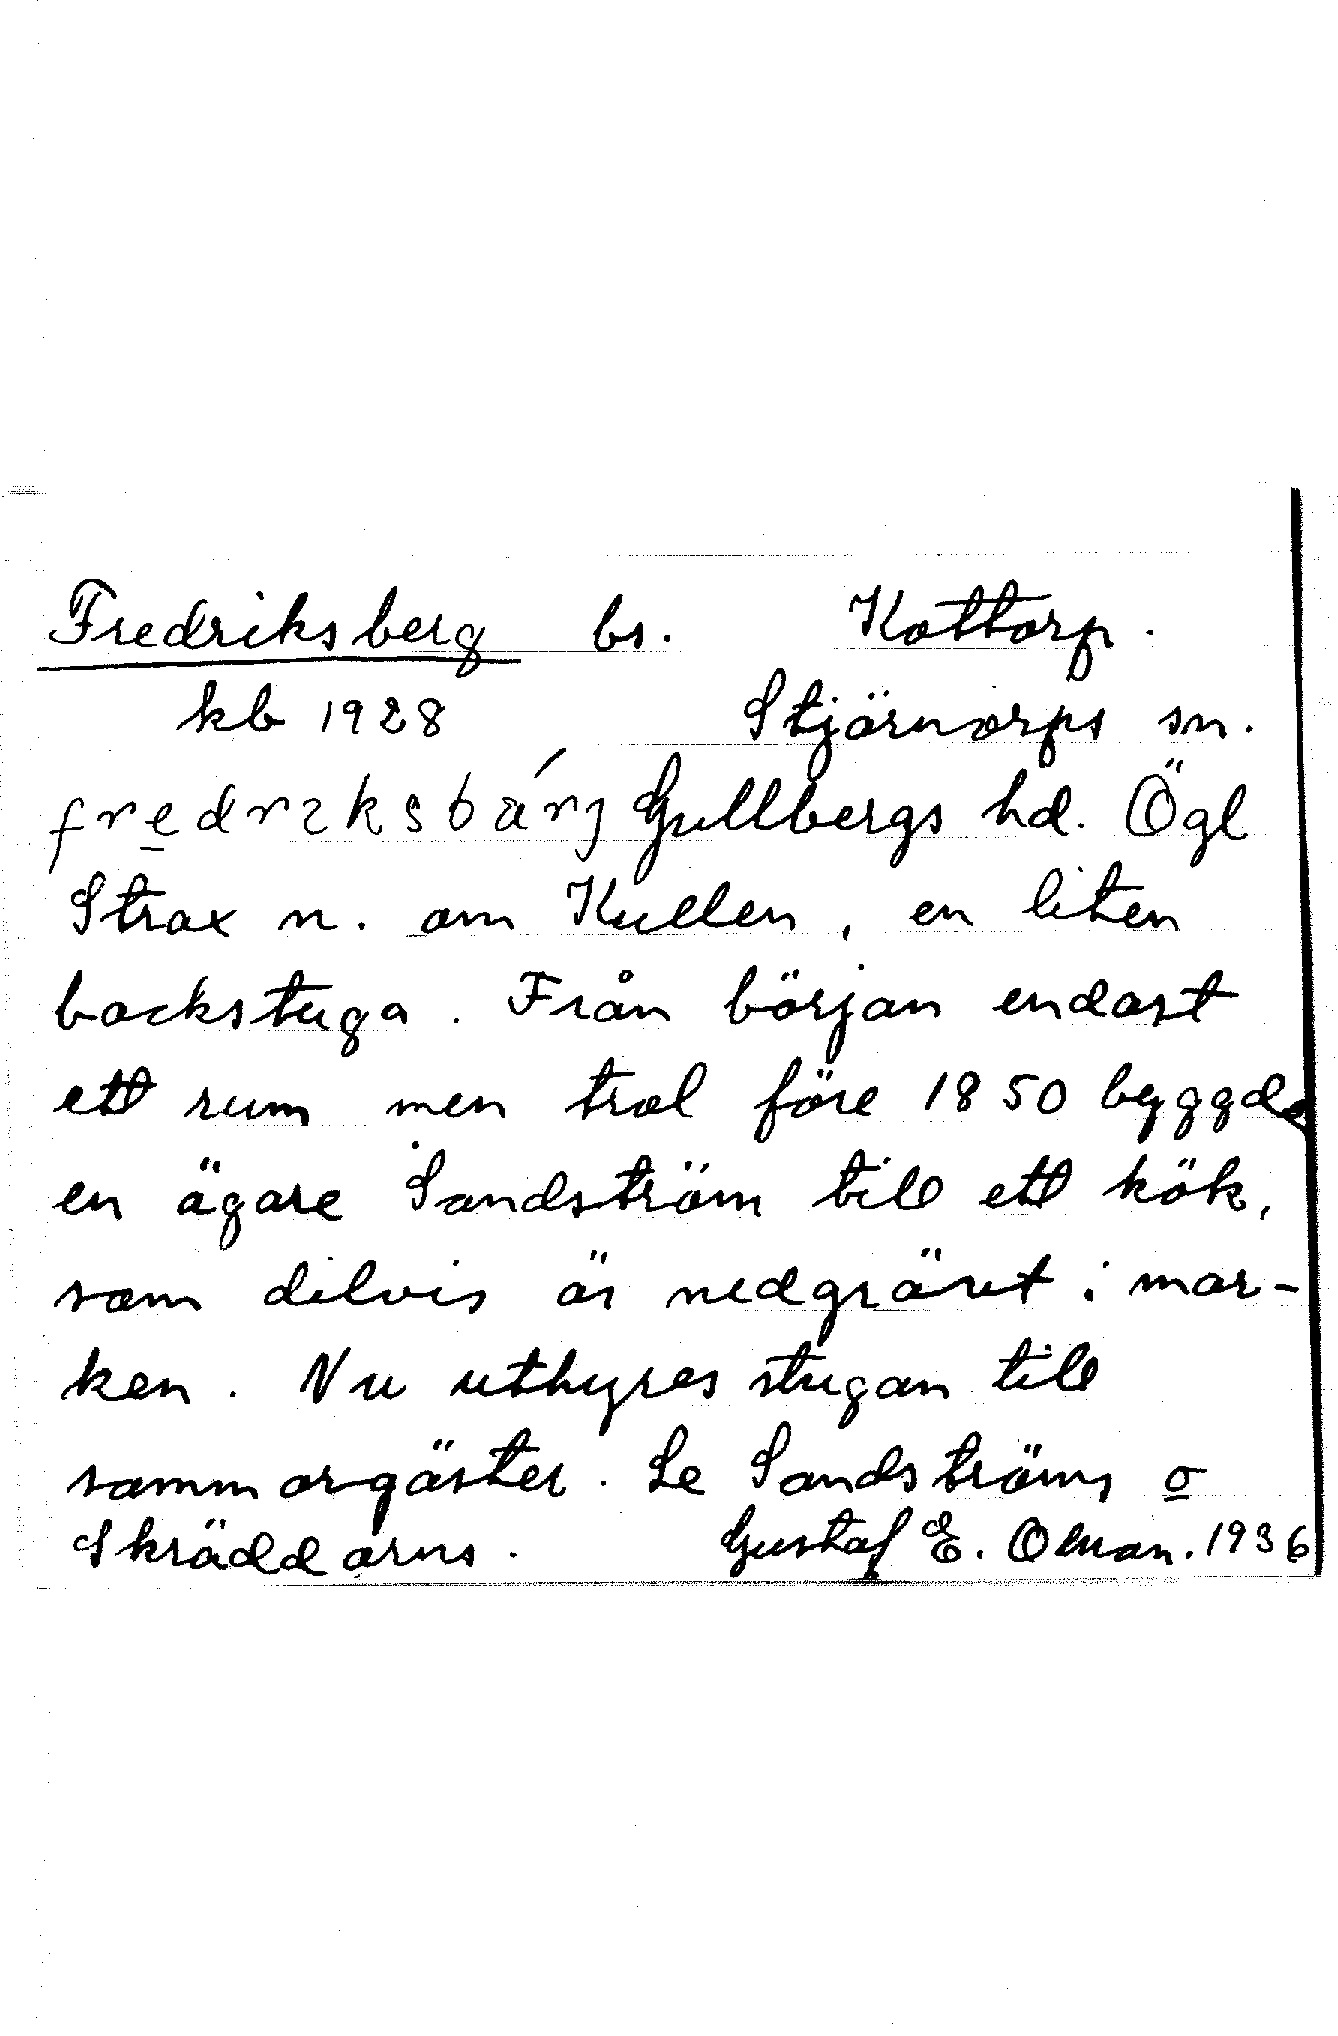 Fredriksberg bs. Kottorp.
kb 1928 Stjärnorps sn.
fredriksbärj Gullbergs hd. Ögl
Strax n. om Kullen, en liten
backstuga. Från början endast
ett rum men trol före 1850 byggde
en ägare Sandström till ett kök,
som delvis är nedgrävt i mar-
ken. Nu uthyres stugan till
sommargäster. Se Sandströms o
Skräddarns. Gustaf E. Olman. 1936